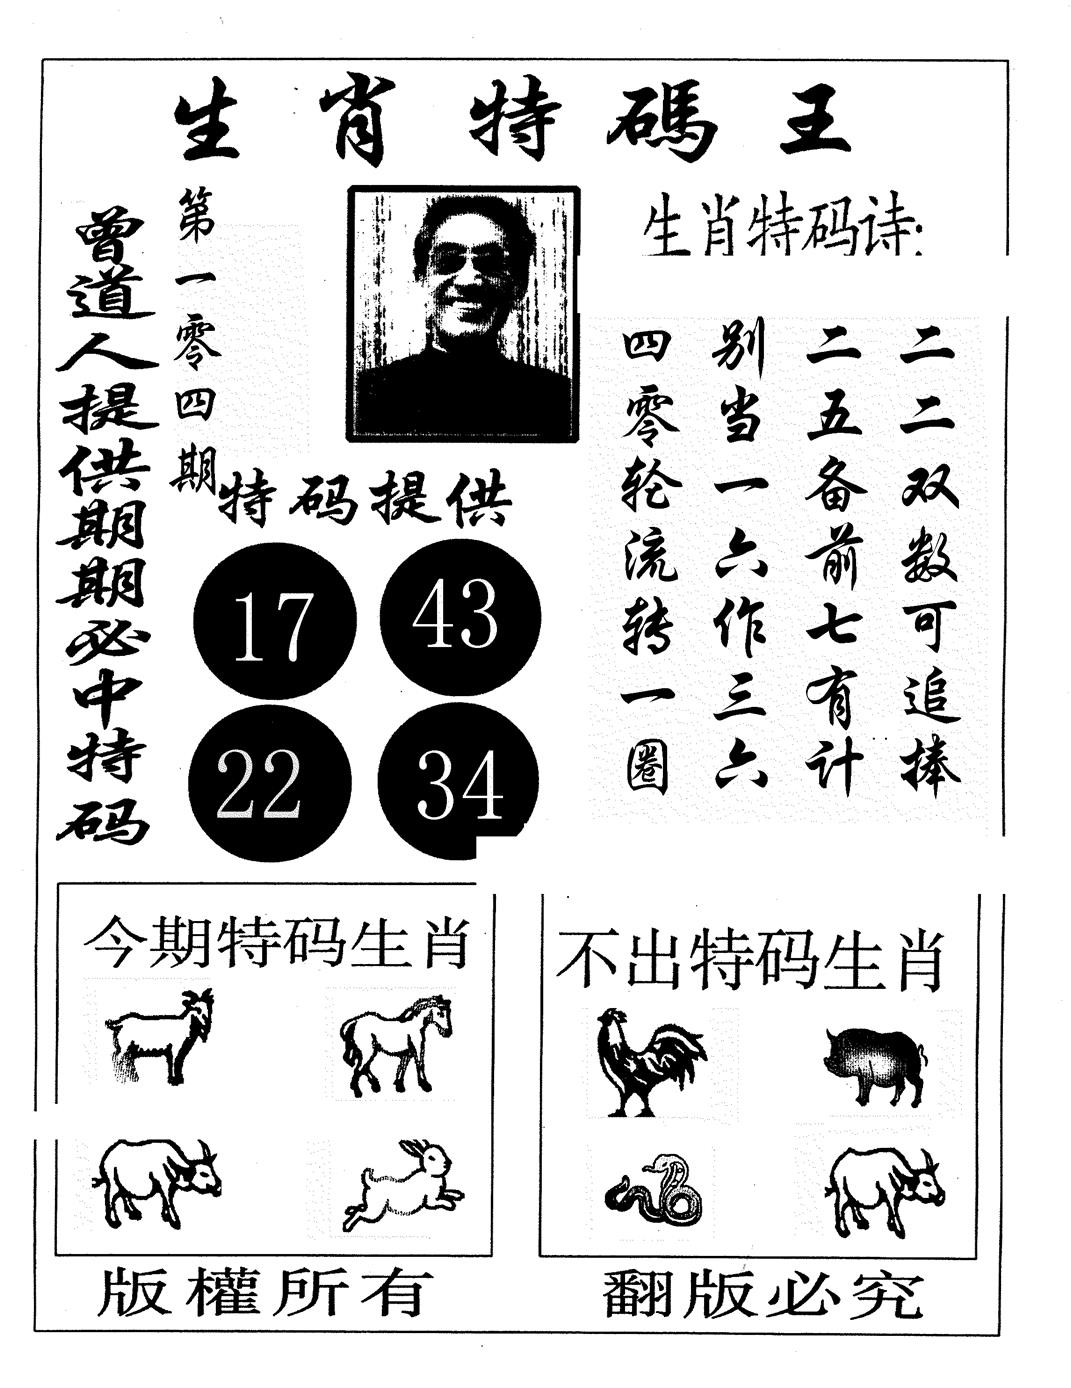 生肖特碼王
曾道人提供期期必中特码
第一零四期
生肖特码诗:
二二双数可追捧
二五备前七有计
别当一六作三六
四零轮流转一圈
特码提供
17 43
22 34
今期特码生肖
不出特码生肖
版權所有
翻版必究